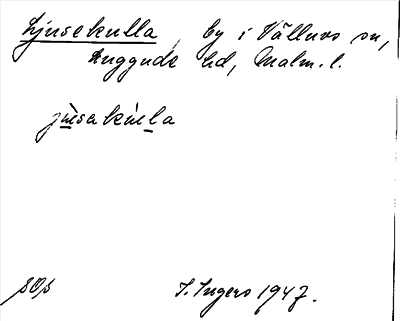 Ljusekulla, by i Vålluvs sn,
Luggude hd, Malm. l.
jùsakùl̲a
SOs
S. Ingers 1947.